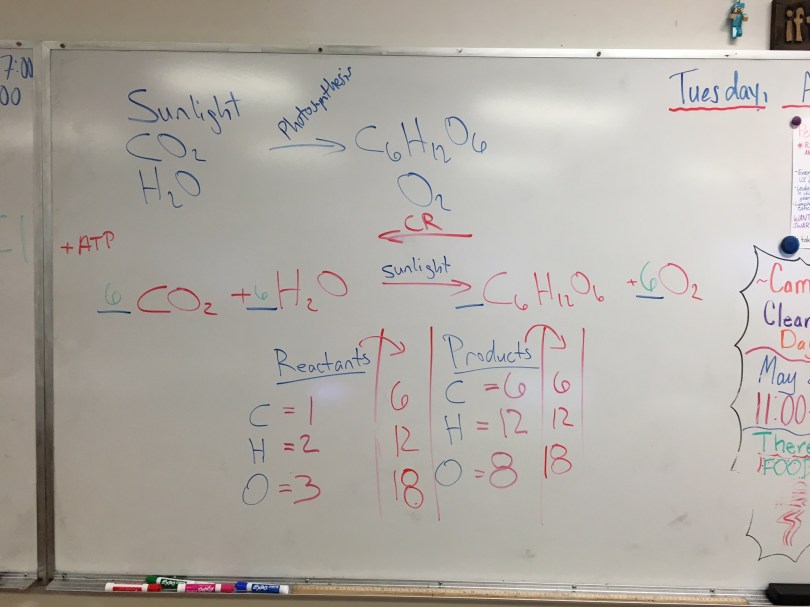 7:00
00
Sunlight
CO2
H2O
Photosynthesis
C6H12O6
O2
CR
+ATP
6 CO2 + 6 H2O
sunlight
_ C6H12O6 + 6 O2
Reactants
C = 1 6
H = 2 12
O = 3 18
Products
C = 6 6
H = 12 12
O = 8 18
Tuesday, A
~Cam
Clean
Da
May
11:00
There
FOO
if
EXPO